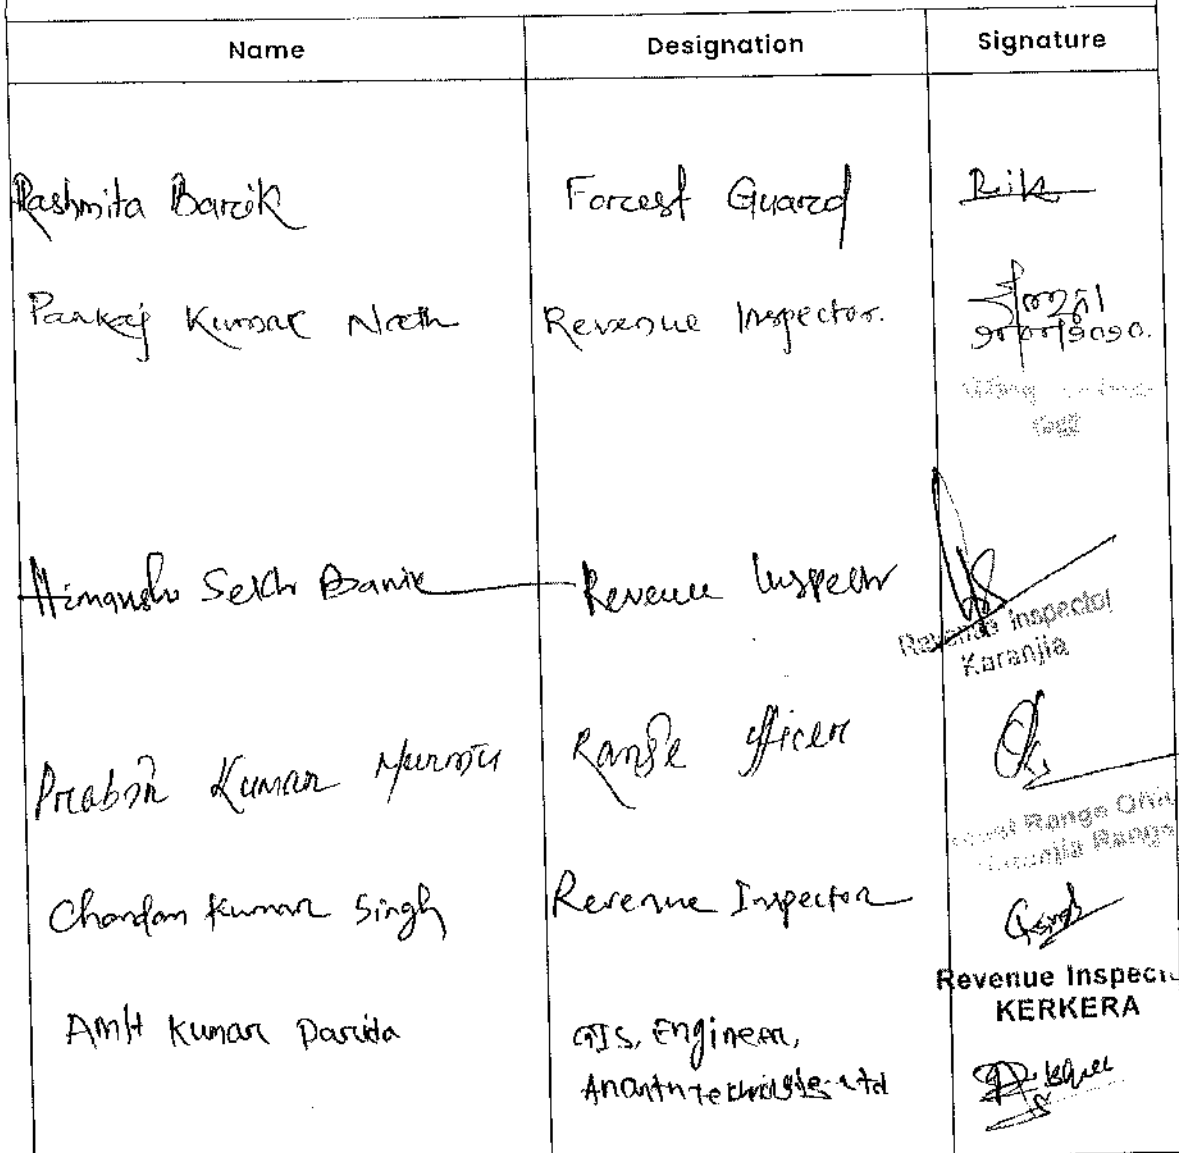 Name Designation Signature
Rashmita Barik Forest Guard Rik
Pankaj Kumar Nath Revenue Inspector.
Himanshu Sekhr Barik Revenue Inspector
Revenue Inspector
Karanjia
Prabir Kumar Murmu Range Officer
Range
Karanjia Range
Chandan Kumar Singh Revenue Inspector
Revenue Inspec
KERKERA
Amit Kumar Parida GIS, Engineer,
Ananth Ltd